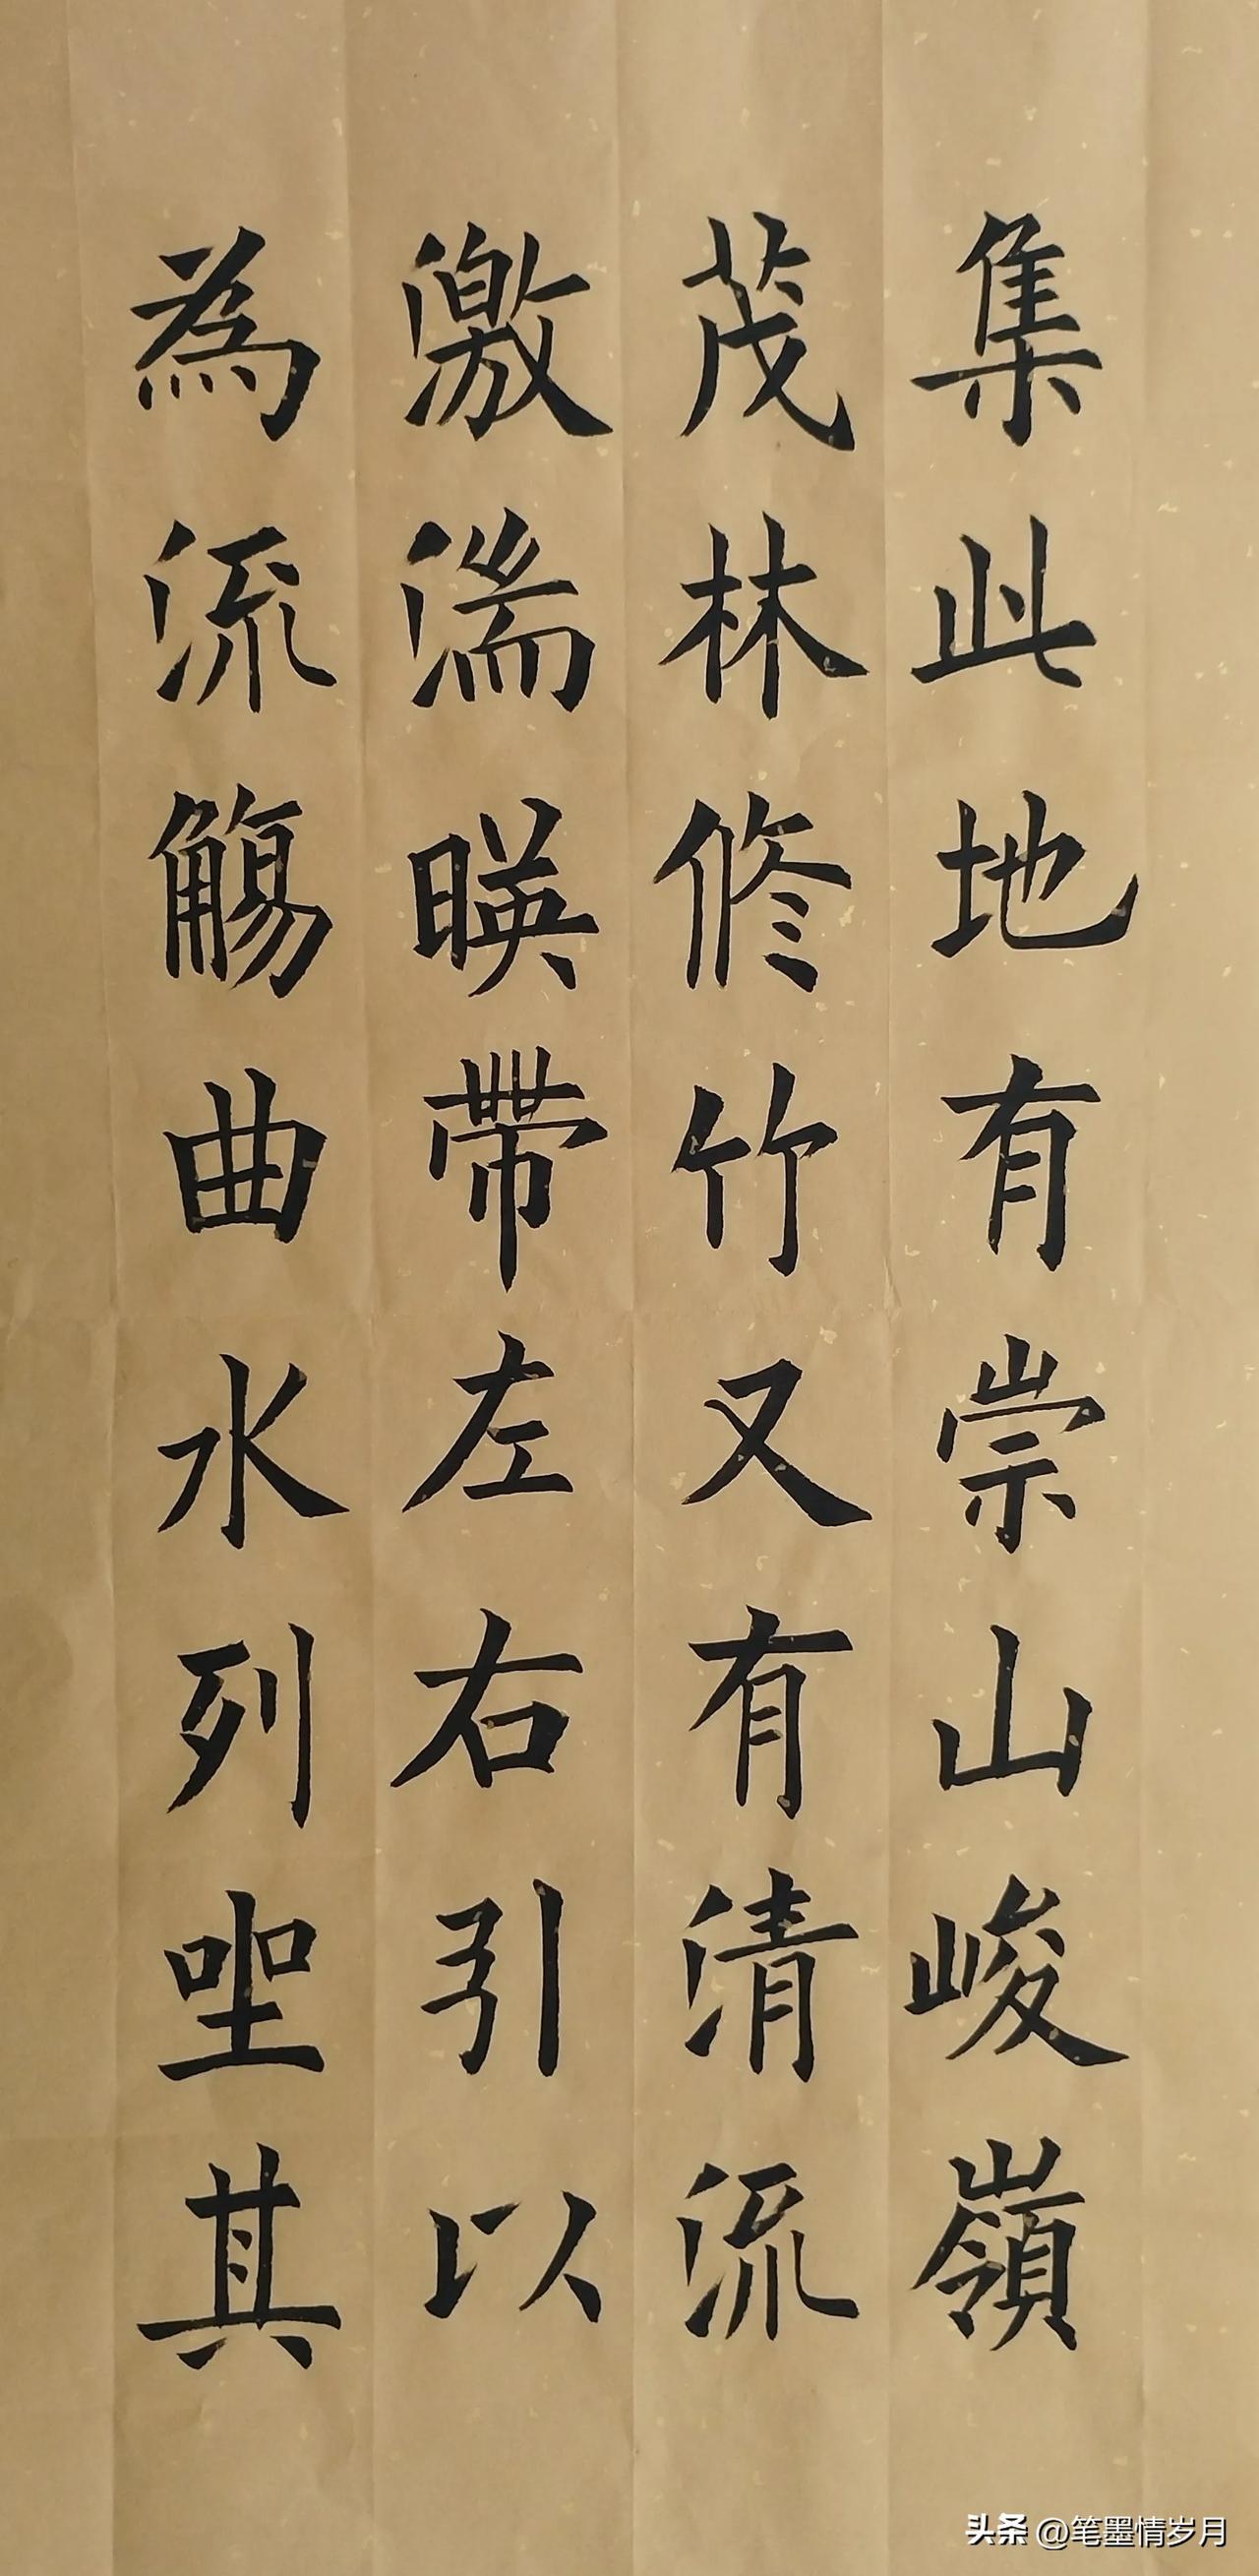 集此地有崇山峻嶺
茂林修竹又有清流
激湍暎帶左右引以
為流觴曲水列坐其
头条 @笔墨情岁月